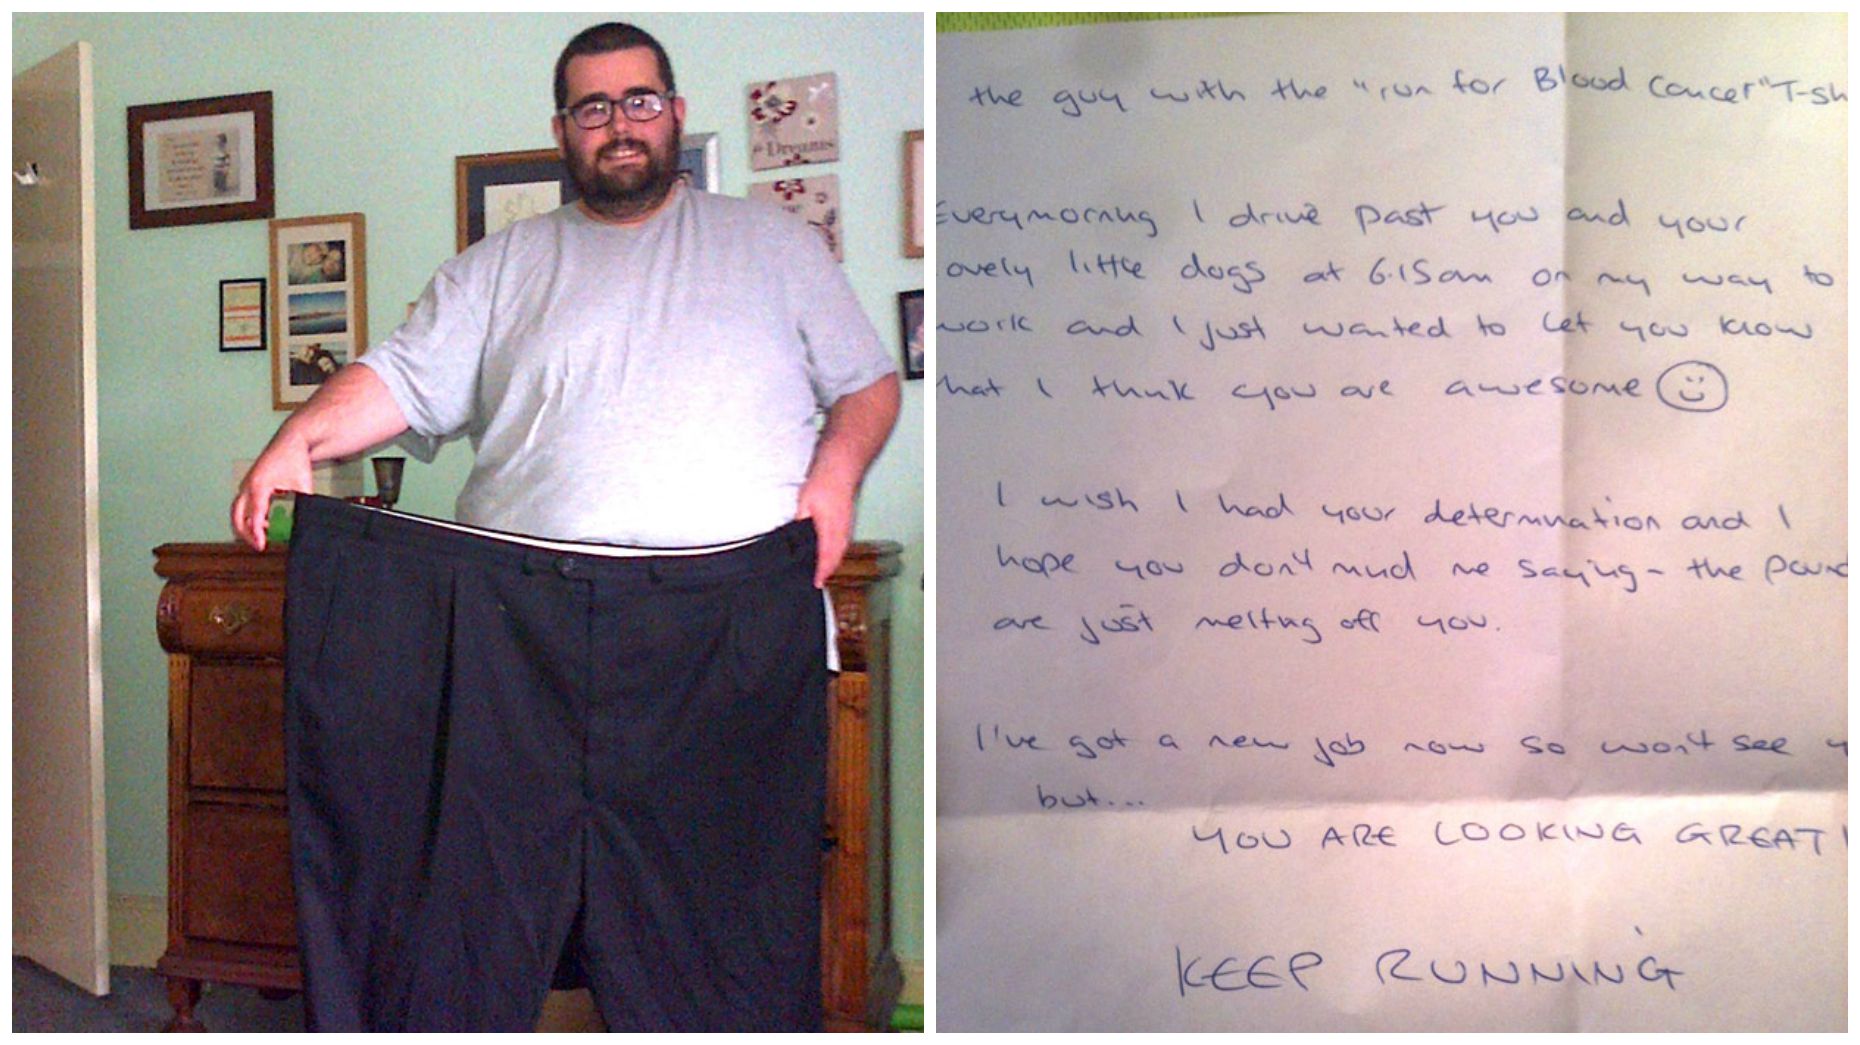 # Dreams
the guy with the "run for Blood Cancer" T-sh
Everymorning I drive past you and your
ovely little dogs at 6.15am on my way to
work and I just wanted to let you know
hat I think you are awesome
I wish I had your determination and I
hope you don't mind me saying - the pound
are just melting off you.
I've got a new job now so won't see y
but...
YOU ARE LOOKING GREAT!
KEEP RUNNING